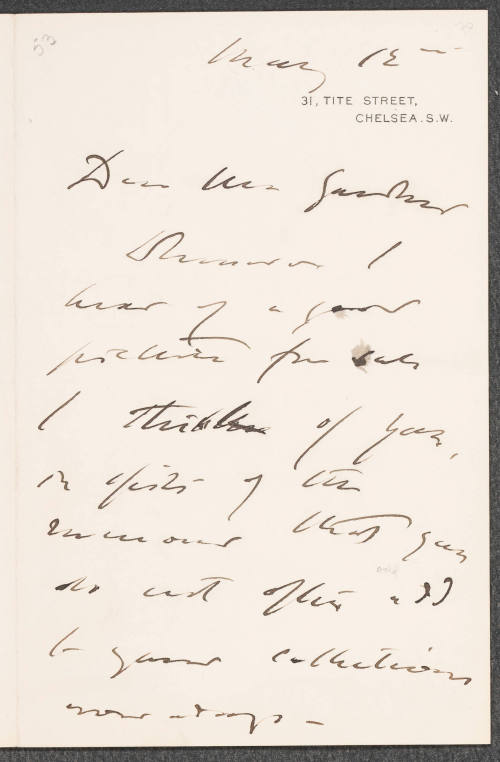 May 12th
31, TITE STREET,
CHELSEA. S.W.
Dear Mrs Gardner
Whenever I
hear of a good
picture for sale
I think of you,
in spite of the
rumour that you
do not often add
to your collections
nowadays –